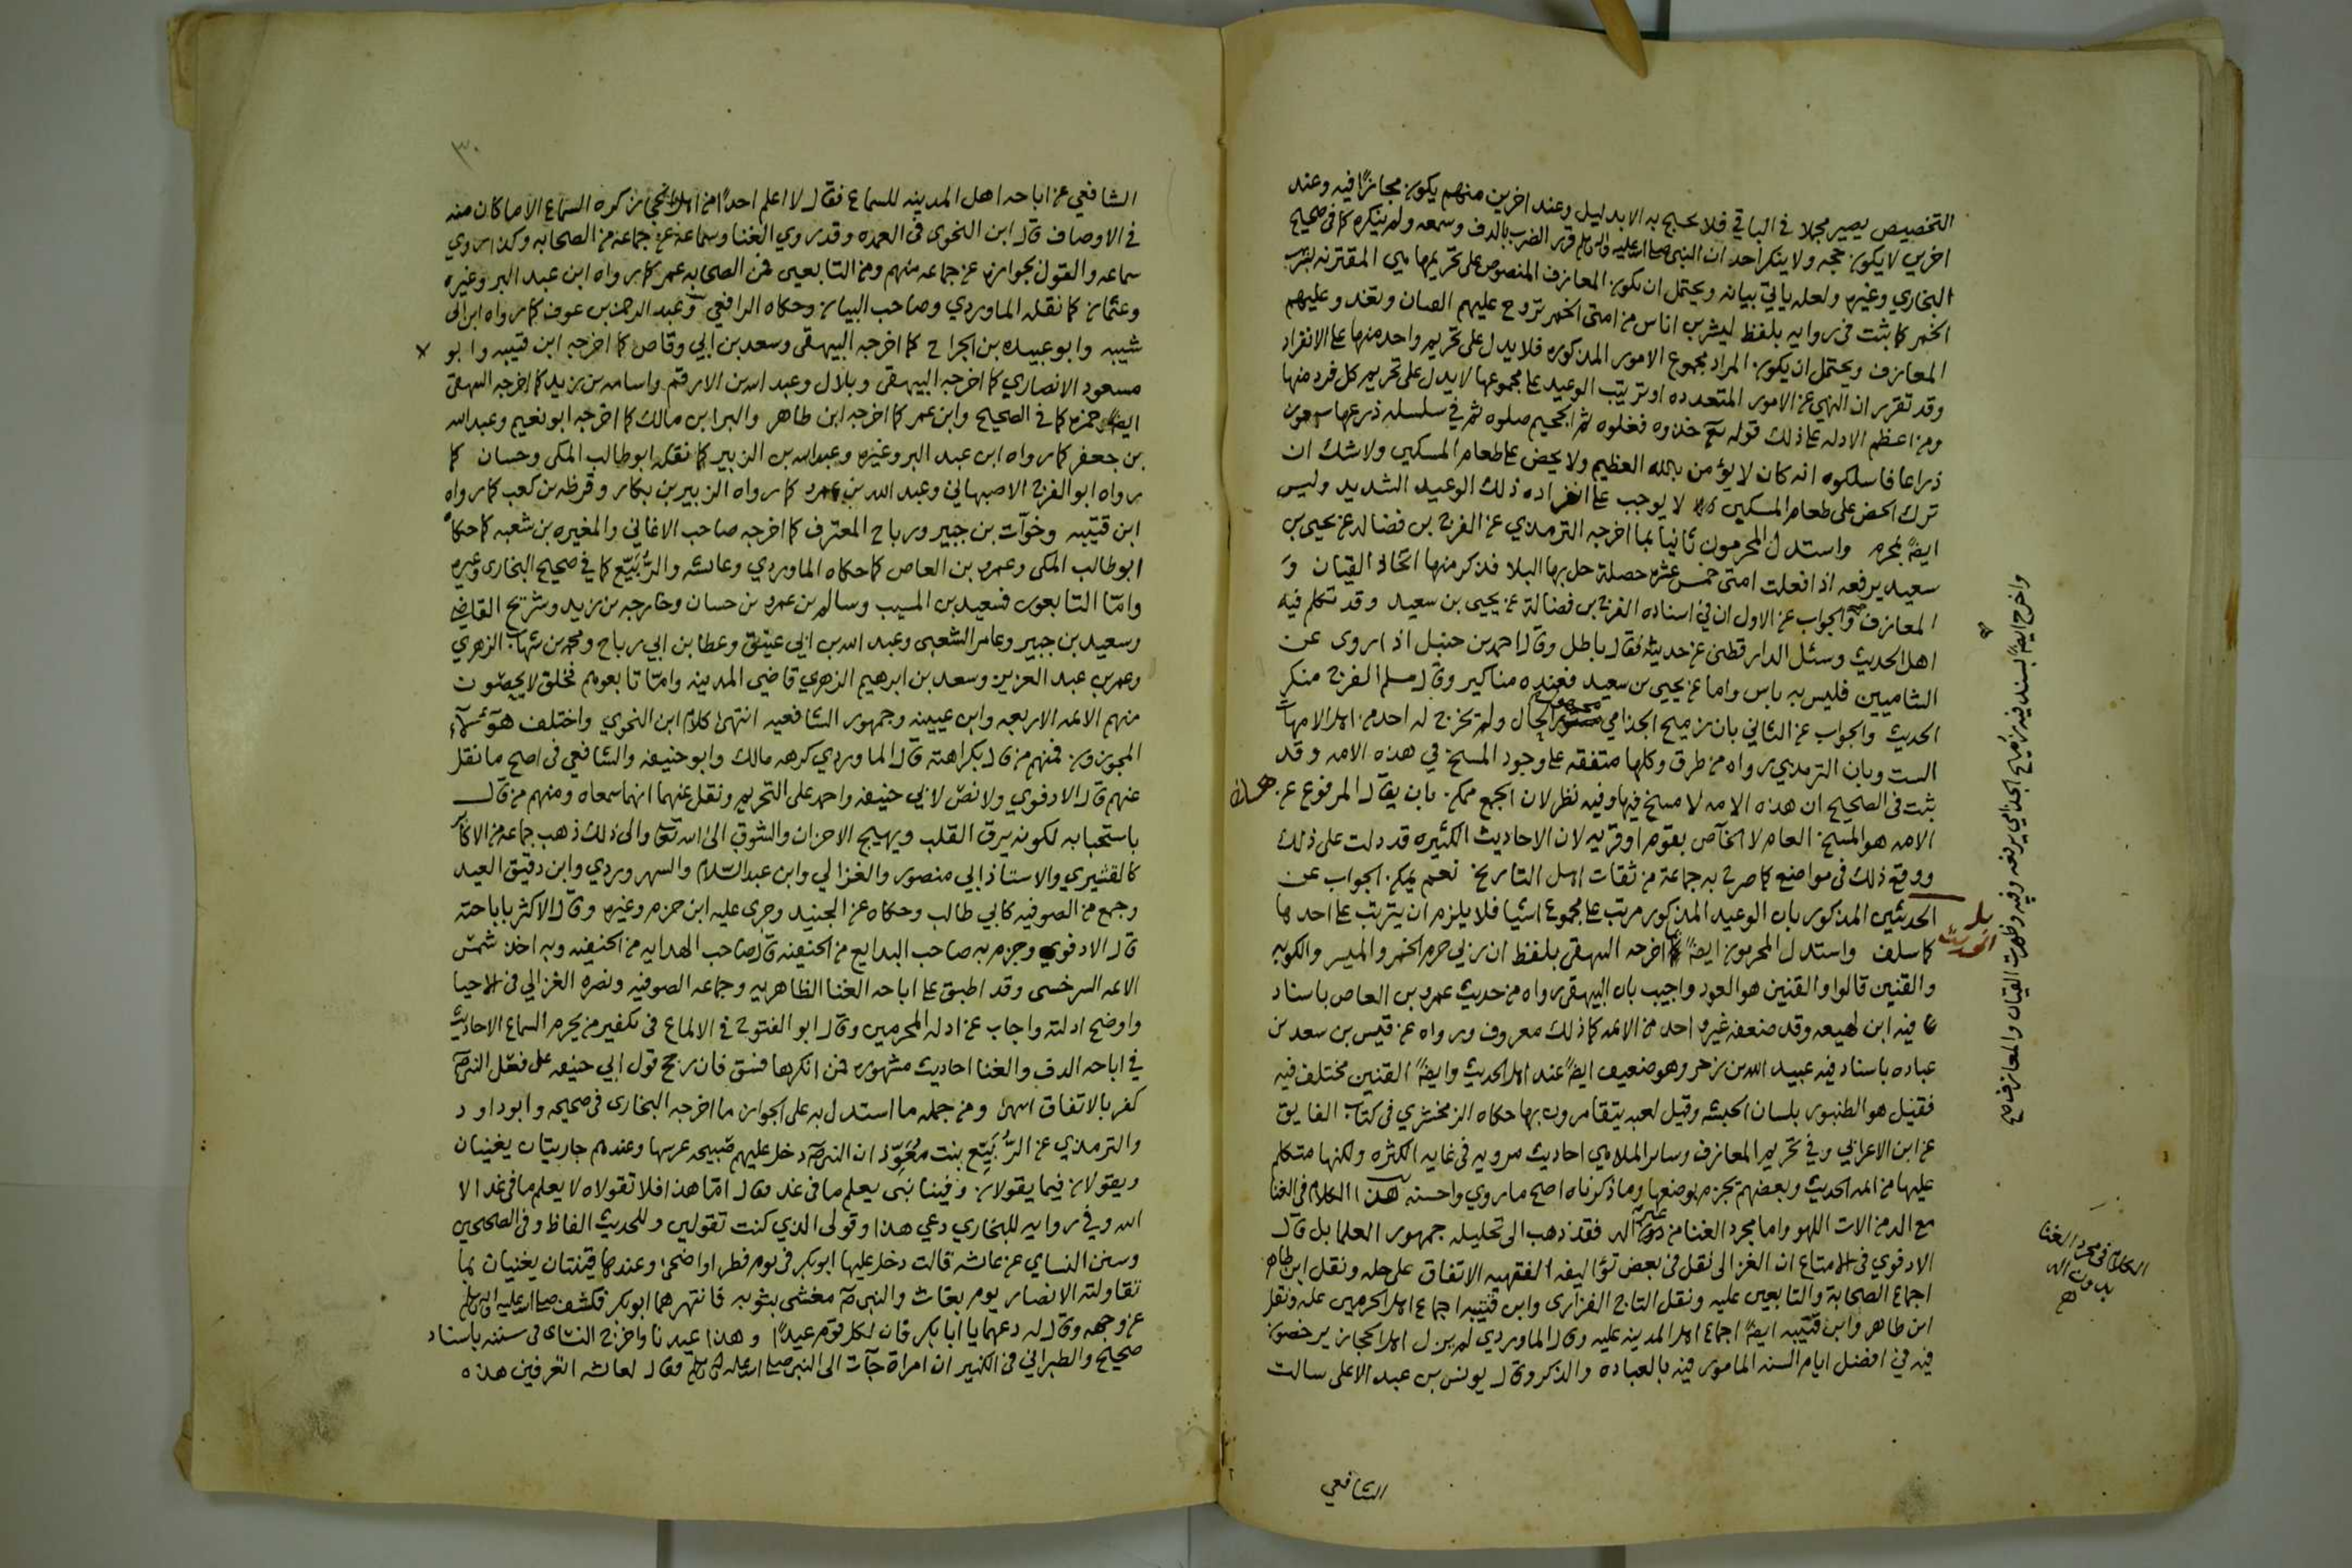 التخصيص يصير مجملا في الباقي فلا يحتج به الا بدليل وعند اخرين منهم يكون مجازا فيه وعند
اخرين لا يكون حجه ولا ينكر احد ان النبي صلى الله عليه واله وسلم قرر الضرب بالدف وسمعه ولم ينكره كما في صحيح
البخاري وغيره ولعله ياتي بيانه ويحتمل ان يكون المعازف المنصوص على تحريمها هي المقترنه بشرب
الخمر كما ثبت في روايه بلفظ ليشربن اناس من امتي الخمر تروح عليهم القيان وتغدو عليهم
المعازف ويحتمل ان يكون المراد مجموع الامور المذكوره فلا يدل على تحريم واحد منها على الانفراد
وقد تقرر ان النهي عن الامور المتعدده او ترتيب الوعيد على مجموعها لا يدل على تحريم كل فرد منها
ومن اعظم الادله على ذلك قوله تع خذوه فغلوه ثم الجحيم صلوه ثم في سلسله ذرعها سبعون
ذراعا فاسلكوه انه كان لا يؤمن بالله العظيم ولا يحض على طعام المسكين ولا شك ان
ترك الحض على طعام المسكين لا يوجب على انفراده ذلك الوعيد الشديد وليس
ايضًا بمحرم واستدل المحرمون ثانيا بما اخرجه الترمذي عن الفرج بن فضاله عن يحيى بن
سعيد يرفعه اذا فعلت امتي خمس عشره خصلة حل بها البلا فذكر منها اتخاذ القيان و
المعازف والجواب عن الاول ان في اسناده الفرج بن فضالة عن يحيى بن سعيد وقد تكلم فيه
اهل الحديث وسئل الدارقطني عن حديثه فقال باطل وقال احمد بن حنبل اذا روى عن
الشاميين فليس به باس واما عن يحيى بن سعيد فعنده مناكير وقال مسلم الفرج منكر
الحديث والجواب عن الثاني بان رميح الجذامي مجهول الحال ولم يخرج له احد من اهل الامهات
الست وبان الترمذي رواه من طرق وكلها متفقه على وجود المسخ في هذه الامه وقد
ثبت في الصحيح ان هذه الامه لا مسخ فيها وفيه نظر لان الجمع ممكن بان يقال المرفوع عن هذه
الامه هو المسخ العام لا الخاص بقوم او قريه لان الاحاديث الكثيره قد دلت على ذلك
ووقع ذلك في مواضع كما صرح به جماعة من ثقات اهل التاريخ نعم يمكن الجواب عن
الحديثين المذكورين بان الوعيد المذكور مرتب على مجموع اشيا فلا يلزم ان يترتب على احدها
كما سلف واستدل المحرمون ايضًا بما اخرجه البيهقي بلفظ ان ربي حرم الخمر والميسر والكوبه
والقنين قالوا والقنين هو العود واجيب بان البيهقي رواه من حديث عمرو بن العاص باسناد
فيه ابن لهيعه وقد ضعفه غير واحد من الائمه كما ذلك معروف ورواه عن قيس بن سعد بن
عباده باسناد فيه عبيد الله بن زحر وهو ضعيف ايضًا عند اهل الحديث وايضًا القنين مختلف فيه
فقيل هو الطنبور بلسان الحبشه وقيل لعبه يتقامرون بها حكاه الزمخشري في كتاب الفايق
عن ابن الاعرابي وفي تحريم المعازف وساير الملاهي احاديث مرويه في غايه الكثره ولكنها متكلم
عليها من ائمه الحديث وبعضهم يجزم بوضعها وما ذكرناه اصح ما روي واحسنه هذا الكلام في الغنا
مع اله من الات اللهو واما مجرد الغنا من غير اله فقد ذهب الى تحليله جمهور العلما بل قال
الادفوي في الامتاع ان الغزالي نقل في بعض تواليفه الفقهيه الاتفاق على حله ونقل ابن طاهر
اجماع الصحابة والتابعين عليه ونقل التاج الفزاري وابن قتيبه اجماع اهل الحرمين عليه ونقل
ابن طاهر وابن قتيبه ايضًا اجماع اهل المدينه عليه وقال الماوردي لم يزل اهل الحجاز يرخصون
فيه في افضل ايام السنه المامور فيه بالعباده والذكر وقال يونس بن عبد الاعلى سالت
الشافعي
واخرج ايضًا بسند فيه رميح الجذامي يرفعه وفيه وظهرت القيان والمعازف
الكلام في مجرد الغنا
بدون اله
٣٠
الشافعي عن اباحه اهل المدينه للسماع فقال لا اعلم احدًا من اهل الحجاز كره السماع الا ما كان منه
في الاوصاف قال ابن النحوي في العمده وقد روي الغنا وسماعه عن جماعه من الصحابه وكذا روي
سماعه والقول بجوازه عن جماعه منهم ومن التابعين فمن الصحابه عمر كما رواه ابن عبد البر وغيره
وعثمان كما نقله الماوردي وصاحب البيان وحكاه الرافعي وعبد الرحمن بن عوف كما رواه ابن ابي
شيبه وابو عبيده بن الجراح كما اخرجه البيهقي وسعد بن ابي وقاص كما اخرجه ابن قتيبه وابو
مسعود الانصاري كما اخرجه البيهقي وبلال وعبد الله بن الارقم واسامه بن زيد كما اخرجه البيهقي
ايضًا وحمزه كما في الصحيح وابن عمر كما اخرجه ابن طاهر والبرا بن مالك كما اخرجه ابو نعيم وعبد الله
بن جعفر كما رواه ابن عبد البر وغيره وعبد الله بن الزبير كما نقله ابو طالب المكي وحسان كما
رواه ابو الفرج الاصبهاني وعبد الله بن عمرو كما رواه الزبير بن بكار وقرظه بن كعب كما رواه
ابن قتيبه وخوات بن جبير ورباح المعترف كما اخرجه صاحب الاغاني والمغيره بن شعبه كما حكاه
ابو طالب المكي وعمرو بن العاص كما حكاه الماوردي وعائشه والربيع كما في صحيح البخاري وغيره
وامّا التابعون فسعيد بن المسيب وسالم بن عمرو بن حسان وخارجه بن زيد وشريح القاضي
وسعيد بن جبير وعامر الشعبي وعبد الله بن ابي عتيق وعطا بن ابي رباح ومحمد بن شهاب الزهري
وعمر بن عبد العزيز وسعد بن ابرهيم الزهري قاضي المدينه وامّا تابعوهم فخلق لا يحصون
منهم الائمه الاربعه وابن عيينه وجمهور الشافعيه انتهى كلام ابن النحوي واختلف هؤلاء
المجوزون فمنهم من قال بكراهته قال الماوردي كرهه مالك وابو حنيفه والشافعي في اصح ما نقل
عنهم قال الادفوي ولا نصّ لابي حنيفه واحمد على التحريم ونقل عنهما انهما سمعاه ومنهم من قال
باستحبابه لكونه يرق القلب ويهيج الاحزان والشوق الى الله تعالى والى ذلك ذهب جماعه من الاكابر
كالقشيري والاستاذ ابي منصور والغزالي وابن عبد السّلام والسهروردي وابن دقيق العيد
وجمع من الصوفيه كابي طالب وحكاه عن الجنيد وجرى عليه ابن حزم وغيره وقال الاكثر باباحته
قال الادفوي وجزم به صاحب البدايع من الحنفيه قال صاحب الهدايه من الحنفيه وبه اخذ شمس
الائمه السرخسي وقد اطبق على اباحه الغنا الظاهريه وجماعه الصوفيه ونصره الغزالي في الاحيا
واوضح ادلته واجاب عن ادله المحرمين وقال ابو الفتوح في الالماع في تكفير من يحرم السماع الاحاديث
في اباحه الدف والغنا احاديث مشهوره فمن انكرها فسق فان رجح قول ابي حنيفه على فعل النبي
كفر بالاتفاق انتهى ومن جمله ما استدل به على الجواز ما اخرجه البخاري في صحيحه وابو داود
والترمذي عن الرُّبَيِّع بنت مُعَوِّذ ان النبي دخل عليهم صبيحه عرسها وعندهم جاريتان يغنيان
ويقولان فيما يقولان وفينا نبي يعلم ما في غد فقال امّا هذا فلا تقولاه لا يعلم ما في غد الا
الله وفي روايه للبخاري دعي هذا وقولي الذي كنت تقولين وللحديث الفاظ وفي الصحيحين
وسنن النساي عن عائشه قالت دخل عليها ابو بكر في يوم فطر او اضحى وعندها قينتان يغنيان بما
تقاولته الانصار يوم بعاث والنبي مغشى بثوبه فانتهرهما ابو بكر فكشف صلى الله عليه واله وسلم
عن وجهه وقال له دعهما يا ابا بكر فان لكل قوم عيدًا وهذا عيدنا واخرج النساي في سننه باسناد
صحيح والطبراني في الكبير ان امراة جآت الى النبي صلى الله عليه واله وسلم فقال لعائشه اتعرفين هذه